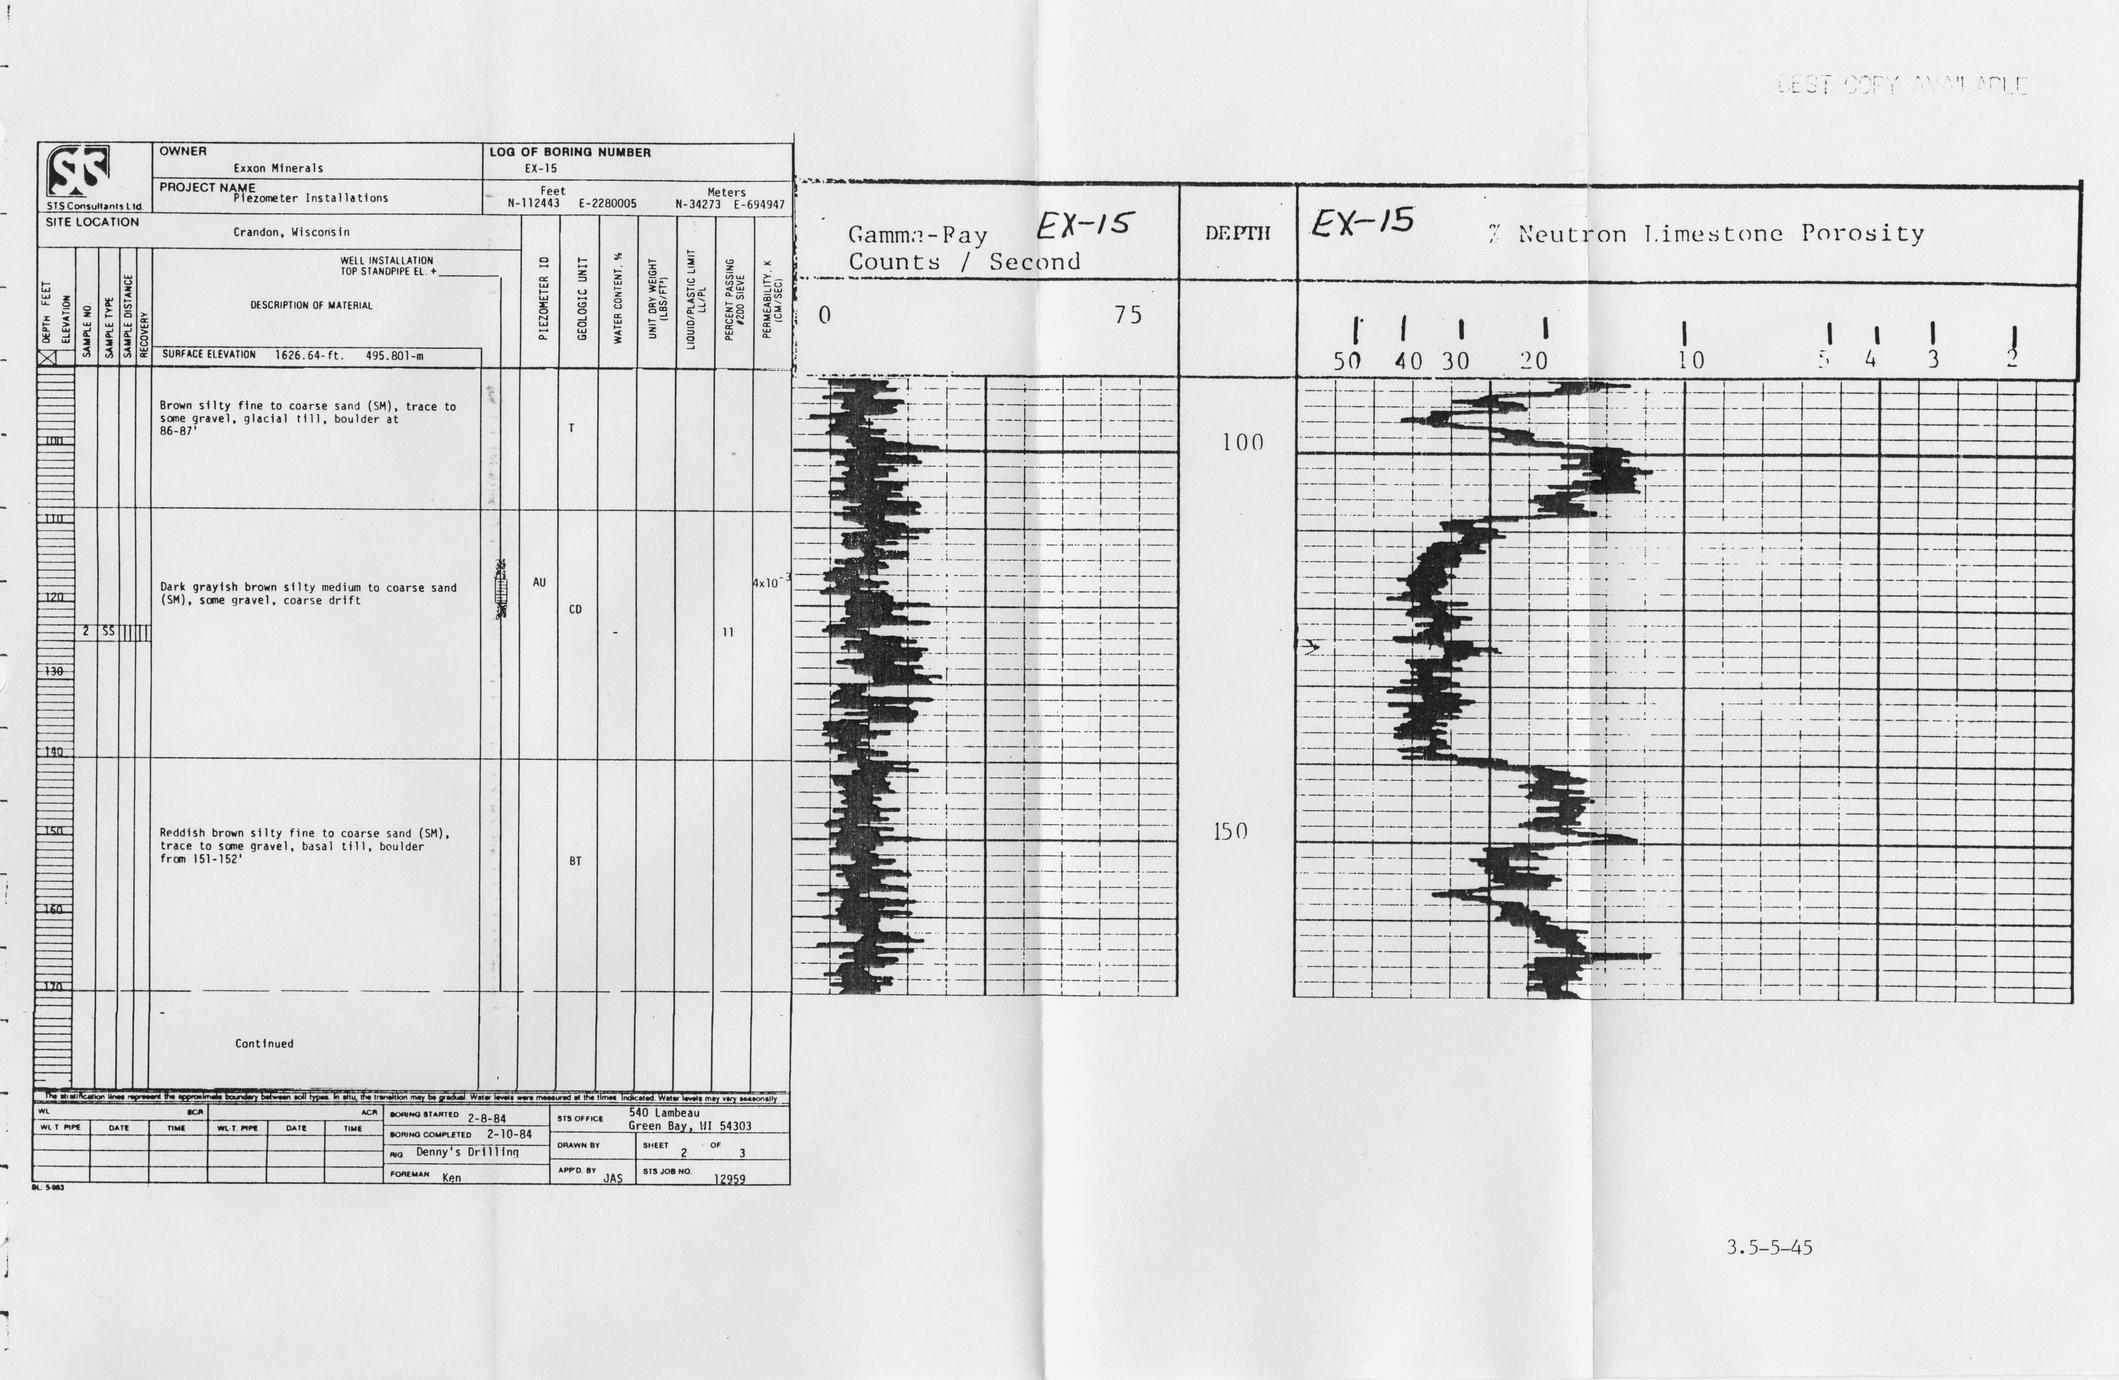 BEST COPY AVAILABLE
STS
STS Consultants Ltd.
OWNER
Exxon Minerals
LOG OF BORING NUMBER
EX-15
PROJECT NAME
Piezometer Installations
Feet
Meters
N-112443 E-2280005
N-34273 E-694947
SITE LOCATION
Crandon, Wisconsin
DEPTH FEET
ELEVATION
SAMPLE NO.
SAMPLE TYPE
SAMPLE DISTANCE
RECOVERY
WELL INSTALLATION
TOP STANDPIPE EL. +
DESCRIPTION OF MATERIAL
SURFACE ELEVATION 1626.64-ft. 495.801-m
PIEZOMETER ID
GEOLOGIC UNIT
WATER CONTENT, %
UNIT DRY WEIGHT
(LBS/FT³)
LIQUID/PLASTIC LIMIT
LL/PL
PERCENT PASSING
#200 SIEVE
PERMEABILITY, K
(CM/SEC)
Brown silty fine to coarse sand (SM), trace to
some gravel, glacial till, boulder at
86-87'
T
100
110
Dark grayish brown silty medium to coarse sand
(SM), some gravel, coarse drift
AU
CD
4x10⁻³
120
2 SS
-
11
130
140
150
Reddish brown silty fine to coarse sand (SM),
trace to some gravel, basal till, boulder
from 151-152'
BT
160
170
Continued
The stratification lines represent the approximate boundary between soil types. In situ, the transition may be gradual. Water levels were measured at the times indicated. Water levels may vary seasonally.
WL
BCR
ACR
WL-T. PIPE DATE TIME WL-T. PIPE DATE TIME
BORING STARTED 2-8-84
BORING COMPLETED 2-10-84
RIG Denny's Drilling
FOREMAN Ken
STS OFFICE
540 Lambeau
Green Bay, WI 54303
DRAWN BY
SHEET 2 OF 3
APP'D. BY JAS
STS JOB NO. 12959
Gamma-Ray EX-15
Counts / Second
0 75
DEPTH
100
150
EX-15 % Neutron Limestone Porosity
50 40 30 20 10 5 4 3 2
3.5-5-45